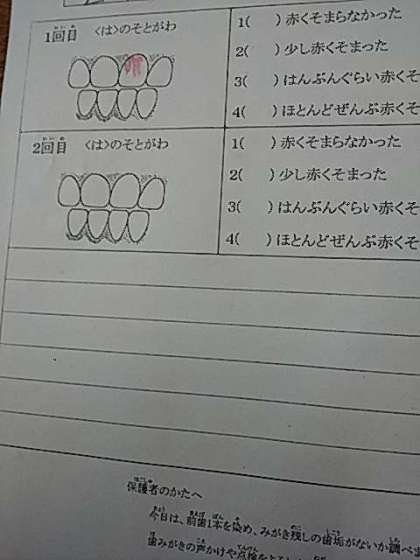 1回目 〈は〉のそとがわ
1( )赤くそまらなかった
2( )少し赤くそまった
3( )はんぶんぐらい赤くそ
4( )ほとんどぜんぶ赤くそ
2回目 〈は〉のそとがわ
1( )赤くそまらなかった
2( )少し赤くそまった
3( )はんぶんぐらい赤くそ
4( )ほとんどぜんぶ赤くそ
保護者のかたへ
今日は、前歯1本を染め、みがき残しの歯垢がないか調
歯みがきの声かけや点検を